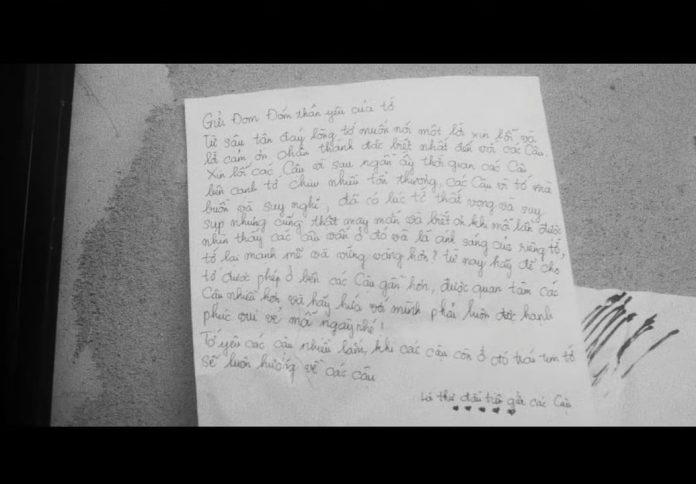 Gửi Đom Đóm thân yêu của tớ
Từ sâu tận đáy lòng tớ muốn nói một lời xin lỗi và
lời cảm ơn chân thành đặc biệt nhất đến với các Cậu.
Xin lỗi các Cậu vì sau ngần ấy thời gian các Cậu
bên cạnh tớ chịu nhiều tổn thương, các Cậu vì tớ mà
buồn và suy nghĩ, đã có lúc tớ thất vọng và suy
sụp nhưng cũng thật may mắn và biết ơn khi mỗi lần được
nhìn thấy các cậu vẫn ở đó và là ánh sáng của riêng tớ,
tớ lại mạnh mẽ và vững vàng hơn! từ nay hãy để cho
tớ được phép ở bên các Cậu gần hơn, được quan tâm các
Cậu nhiều hơn và hãy hứa với mình phải luôn được hạnh
phúc vui vẻ mỗi ngày nhé!
Tớ yêu các cậu nhiều lắm, khi các cậu còn ở đó trái tim tớ
sẽ luôn hướng về các cậu
Lá thư đầu tiên gửi các Cậu